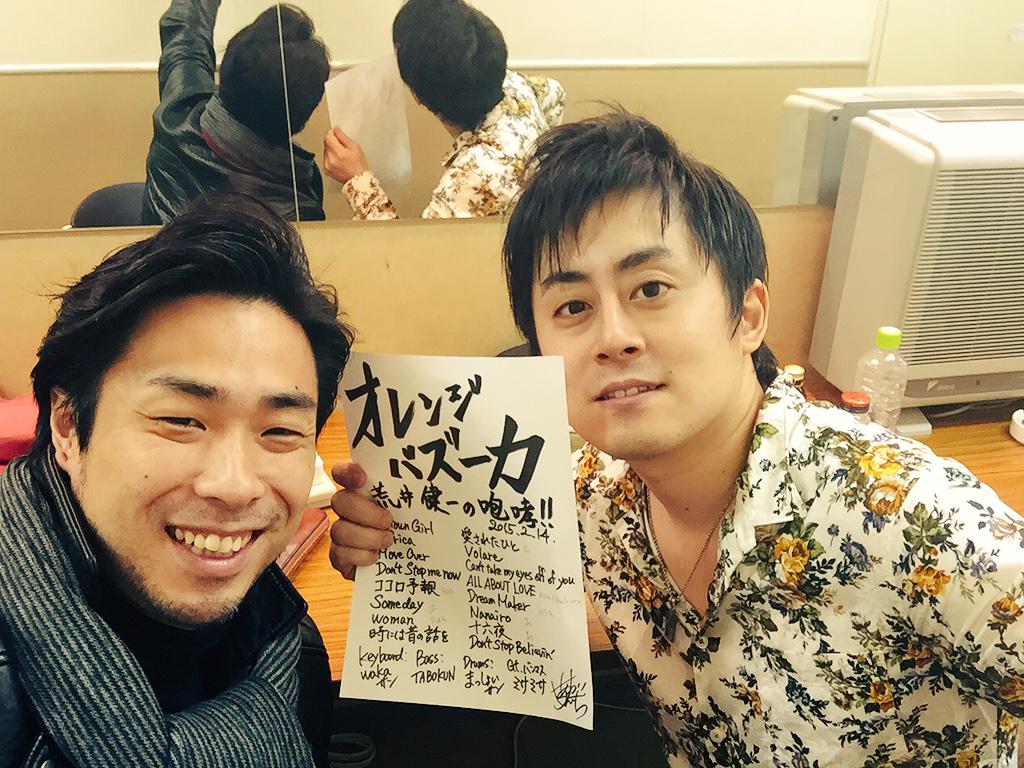 オレンジ
バズーカ
荒井健一の咆哮!!
2015.2.14.
own Girl
rica
Move Over
Don't Stop me now
ココロ予報
Someday
woman
時には昔の話を
愛されたひと
Volare
Can't take my eyes off of you
ALL ABOUT LOVE
Dream Maker
Nanairo
十六夜
Don't Stop Believin'
keyboard: Bass: Drums: Gt.
waka TABOKUN まっしょい ミサミサ
DAIKIN